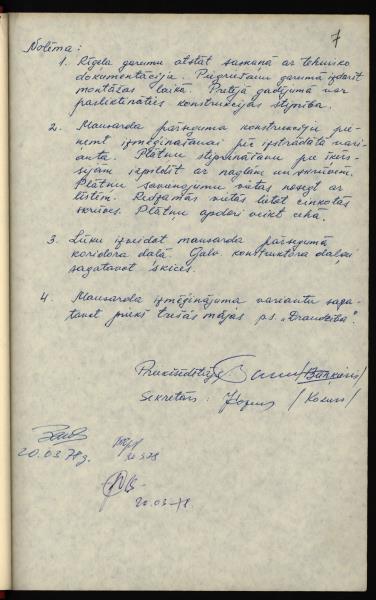 7
Nolēma:
1. Rīgeļa garumu atstāt saskaņā ar tehnisko
dokumentāciju. Piegriešanu garumā izdarīt
montāžas laikā. Pretējā gadījumā var
pasliktināties konstrukcijas stiprība.
2. Mansarda pārseguma konstrukciju pie-
ņemt izmēģināšanai pēc izstrādātā vari-
anta. Plātņu stiprināšanu pie šķērs-
sijām izpildīt ar naglām un skrūvēm.
Plātņu savienojumu vietas nosegt ar
līstēm. Redzamās vietās lietot cinkotās
skrūves. Plātņu apdari veikt cehā.
3. Lūku izveidot mansarda pārsegumā
koridora daļā. Galv. konstruktora daļai
sagatavot skices.
4. Mansarda izmēģinājuma variantu saga-
tavot priekš trešās mājas p.s. „Draudzība".
Priekšsēdētājs /Bankers/
Sekretārs: /
20.03.78g.
20.03.78